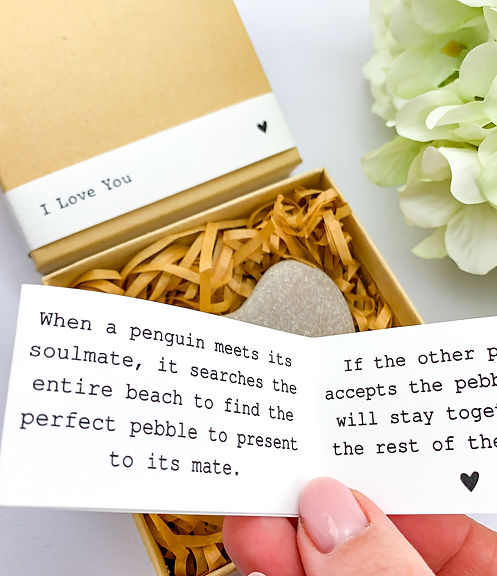 I Love You
When a penguin meets its
soulmate, it searches the
entire beach to find the
perfect pebble to present
to its mate.
If the other
accepts the
will stay
the rest of